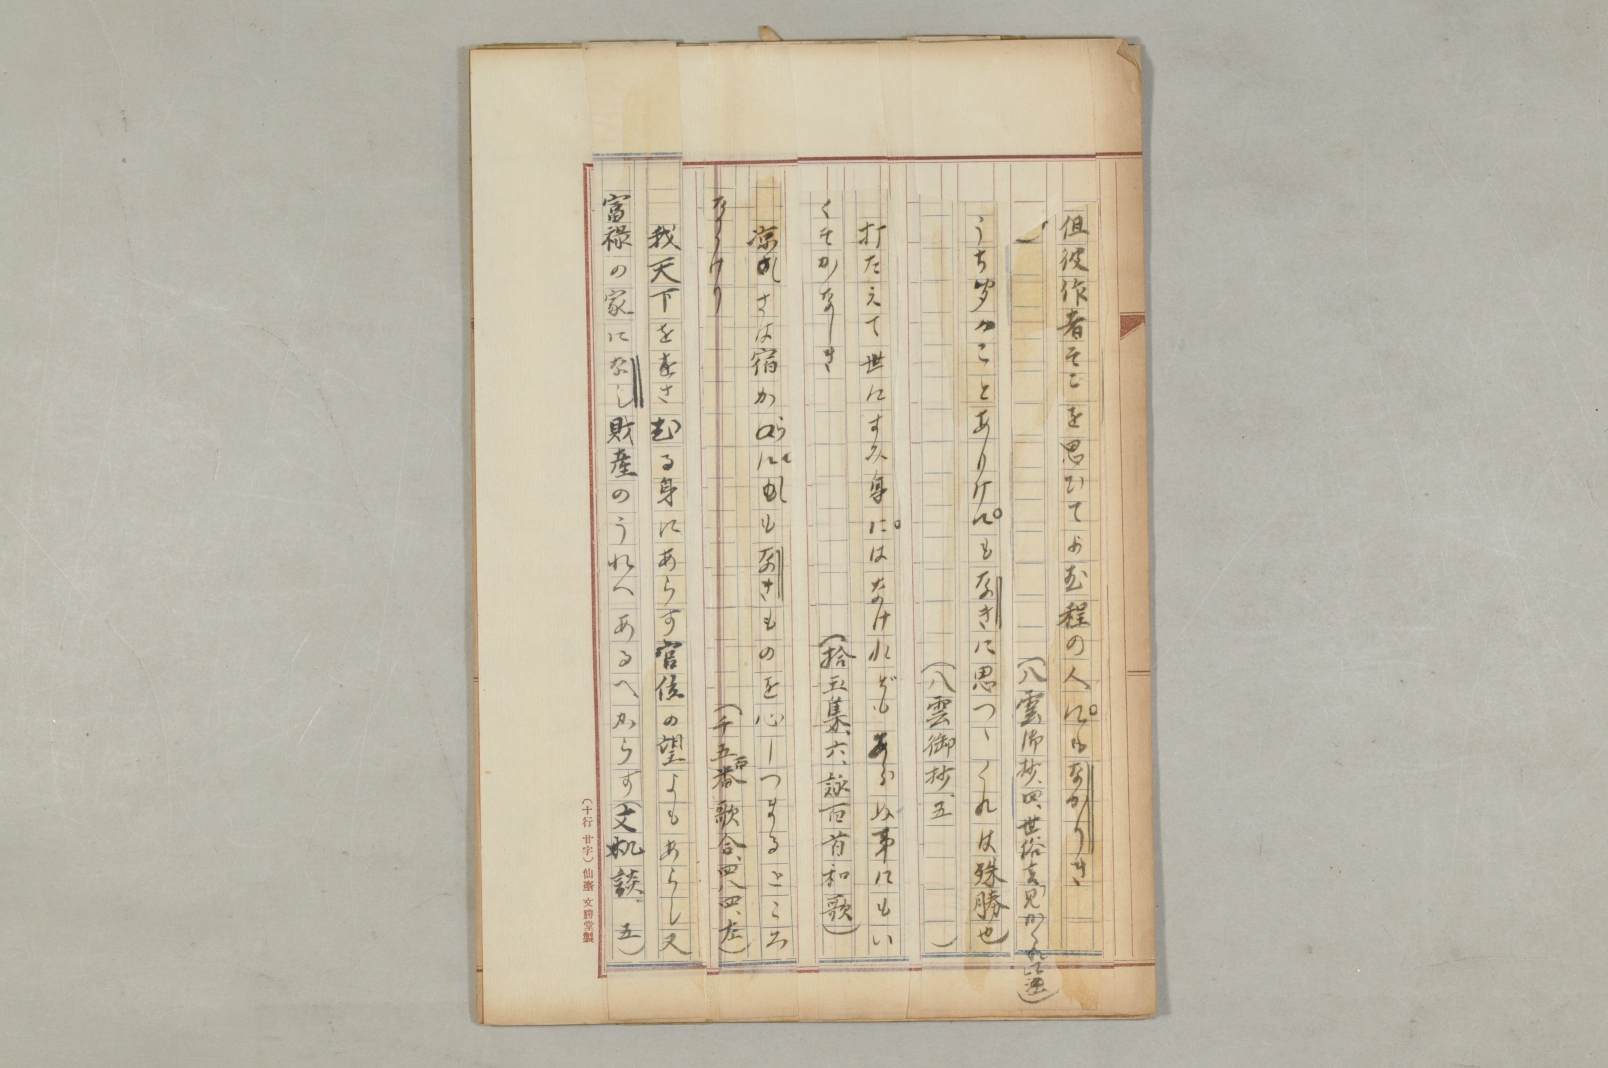 但彼作者そこを思ひてよむ程の人にもなかりき
（八雲御抄、四、世俗言
うち聞くことありけにもなきに思つゝくれは殊勝也
（八雲御抄、五　）
打たえて世にすふ身にはなけれどもあらぬ事にもい
くそかなしき
（拾玉集、六、詠百首和歌）
凉しさは宿からにしもなきものを心しつまるところ
なりけり
（千五百番歌合、四八四、左）
我天下をおさむる身にあらす官位の望よもあらし又
富禄の家になし財産のうれへあるへからす（文机談、五）
（十行 廿字）仙臺 文勝堂製